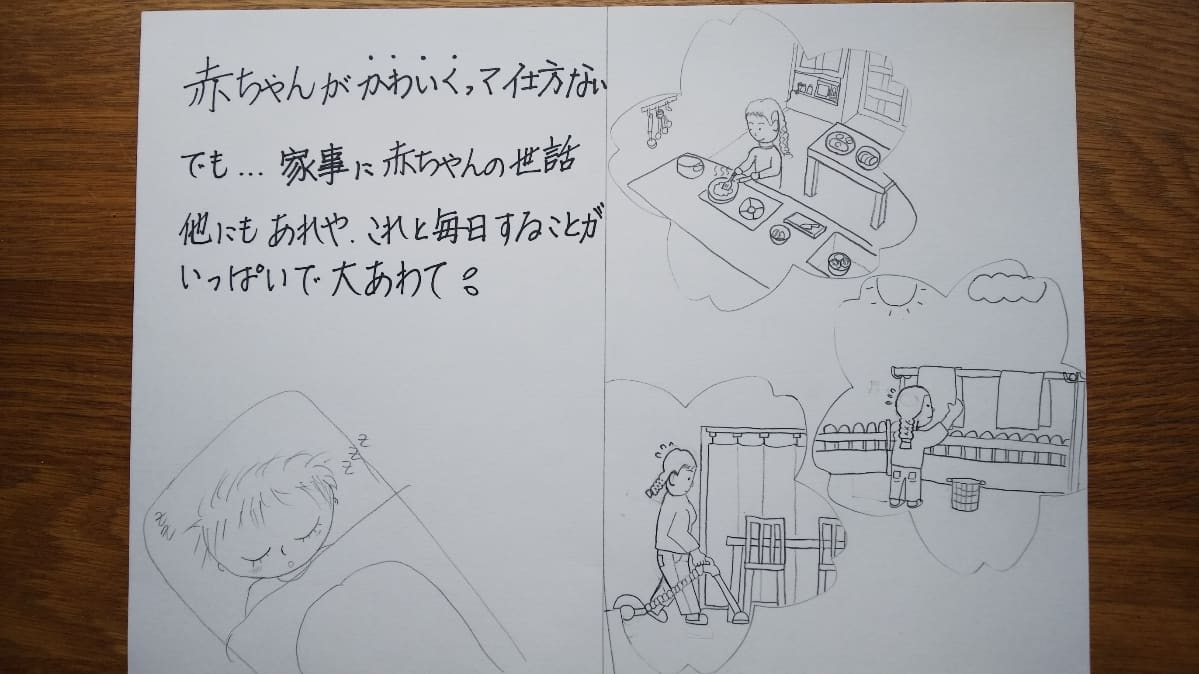 赤ちゃんがかわいくって仕方ない
でも…家事に赤ちゃんの世話
他にもあれや、これと毎日することが
いっぱいで大あわて。
z
z
z
z
z
z